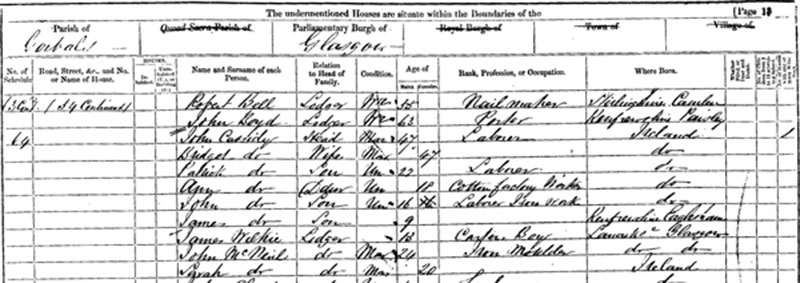 The undermentioned Houses are situate within the Boundaries of the [Page 13
Parish of Quoad Sacra Parish of Parliamentary Burgh of Royal Burgh of Town of Village of
Gorbals Glasgow
HOUSES.
No. of Schedule Road, Street, &c., and No. or Name of House. Name and Surname of each Person. Relation to Head of Family. Condition. Age of Rank, Profession, or Occupation. Where Born.
Males Females
Robert Bell Lodger 55 Nail maker Stirlingshire
John Lodger 63 Porter Renfrewshire
64 John Cassidy Head Mar 47 Laborer Ireland 1
Bridget do Wife Mar 47 do
Patrick do Son Un 22 Laborer do
Ann do Un 18 Cotton factory Worker do
John do Son Un 16 Laborer Iron Work do
James do Son 9 Renfrewshire Eaglesham
James Wilkie Lodger 13 Boy Glasgow
John McNeil do Mar 24 Iron Moulder do do
Sarah do do Mar 20 Ireland